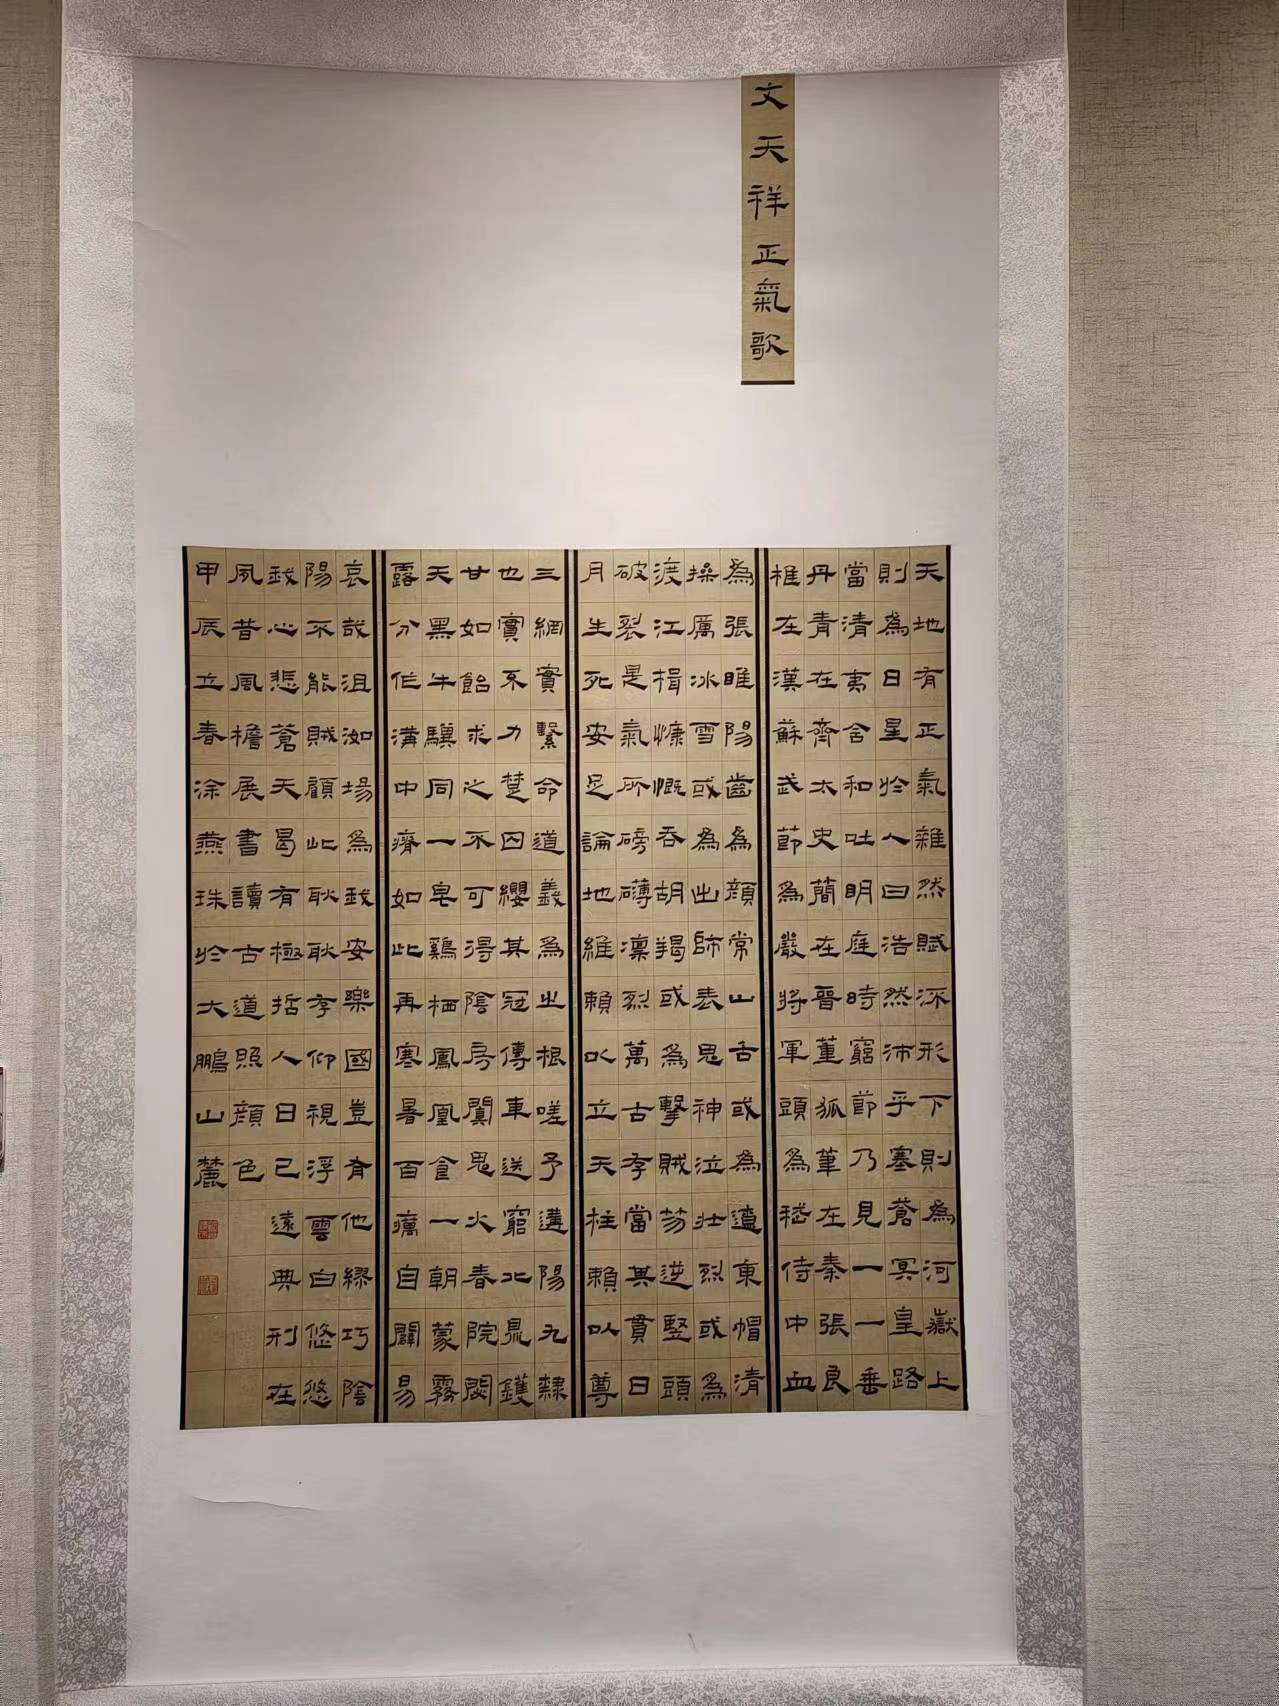 文天祥正氣歌
天地有正氣雜然賦流形下則為河嶽上
則為日星於人曰浩然沛乎塞蒼冥皇路
當清夷含和吐明庭時窮節乃見一一垂
丹青在齊太史簡在晉董狐筆在秦張良
椎在漢蘇武節為嚴將軍頭為嵇侍中血
為張睢陽齒為顏常山舌或為遼東帽清
操厲冰雪或為出師表鬼神泣壯烈或為
渡江楫慷慨吞胡羯或為擊賊笏逆豎頭
破裂是氣所磅礴凜烈萬古存當其貫日
月生死安足論地維賴以立天柱賴以尊
三綱實繫命道義為之根嗟予遘陽九隸
也實不力楚囚纓其冠傳車送窮北鼎鑊
甘如飴求之不可得陰房闃鬼火春院閟
天黑牛驥同一皂鷄栖鳳凰食一朝蒙霧
露分作溝中瘠如此再寒暑百癘自闢易
哀哉沮洳場為我安樂國豈有他繆巧陰
陽不能賊顧此耿耿存仰視浮雲白悠悠
我心悲蒼天曷有極哲人日已遠典刑在
夙昔風檐展書讀古道照顏色
甲辰立春涂燕珠於大鵬山麓